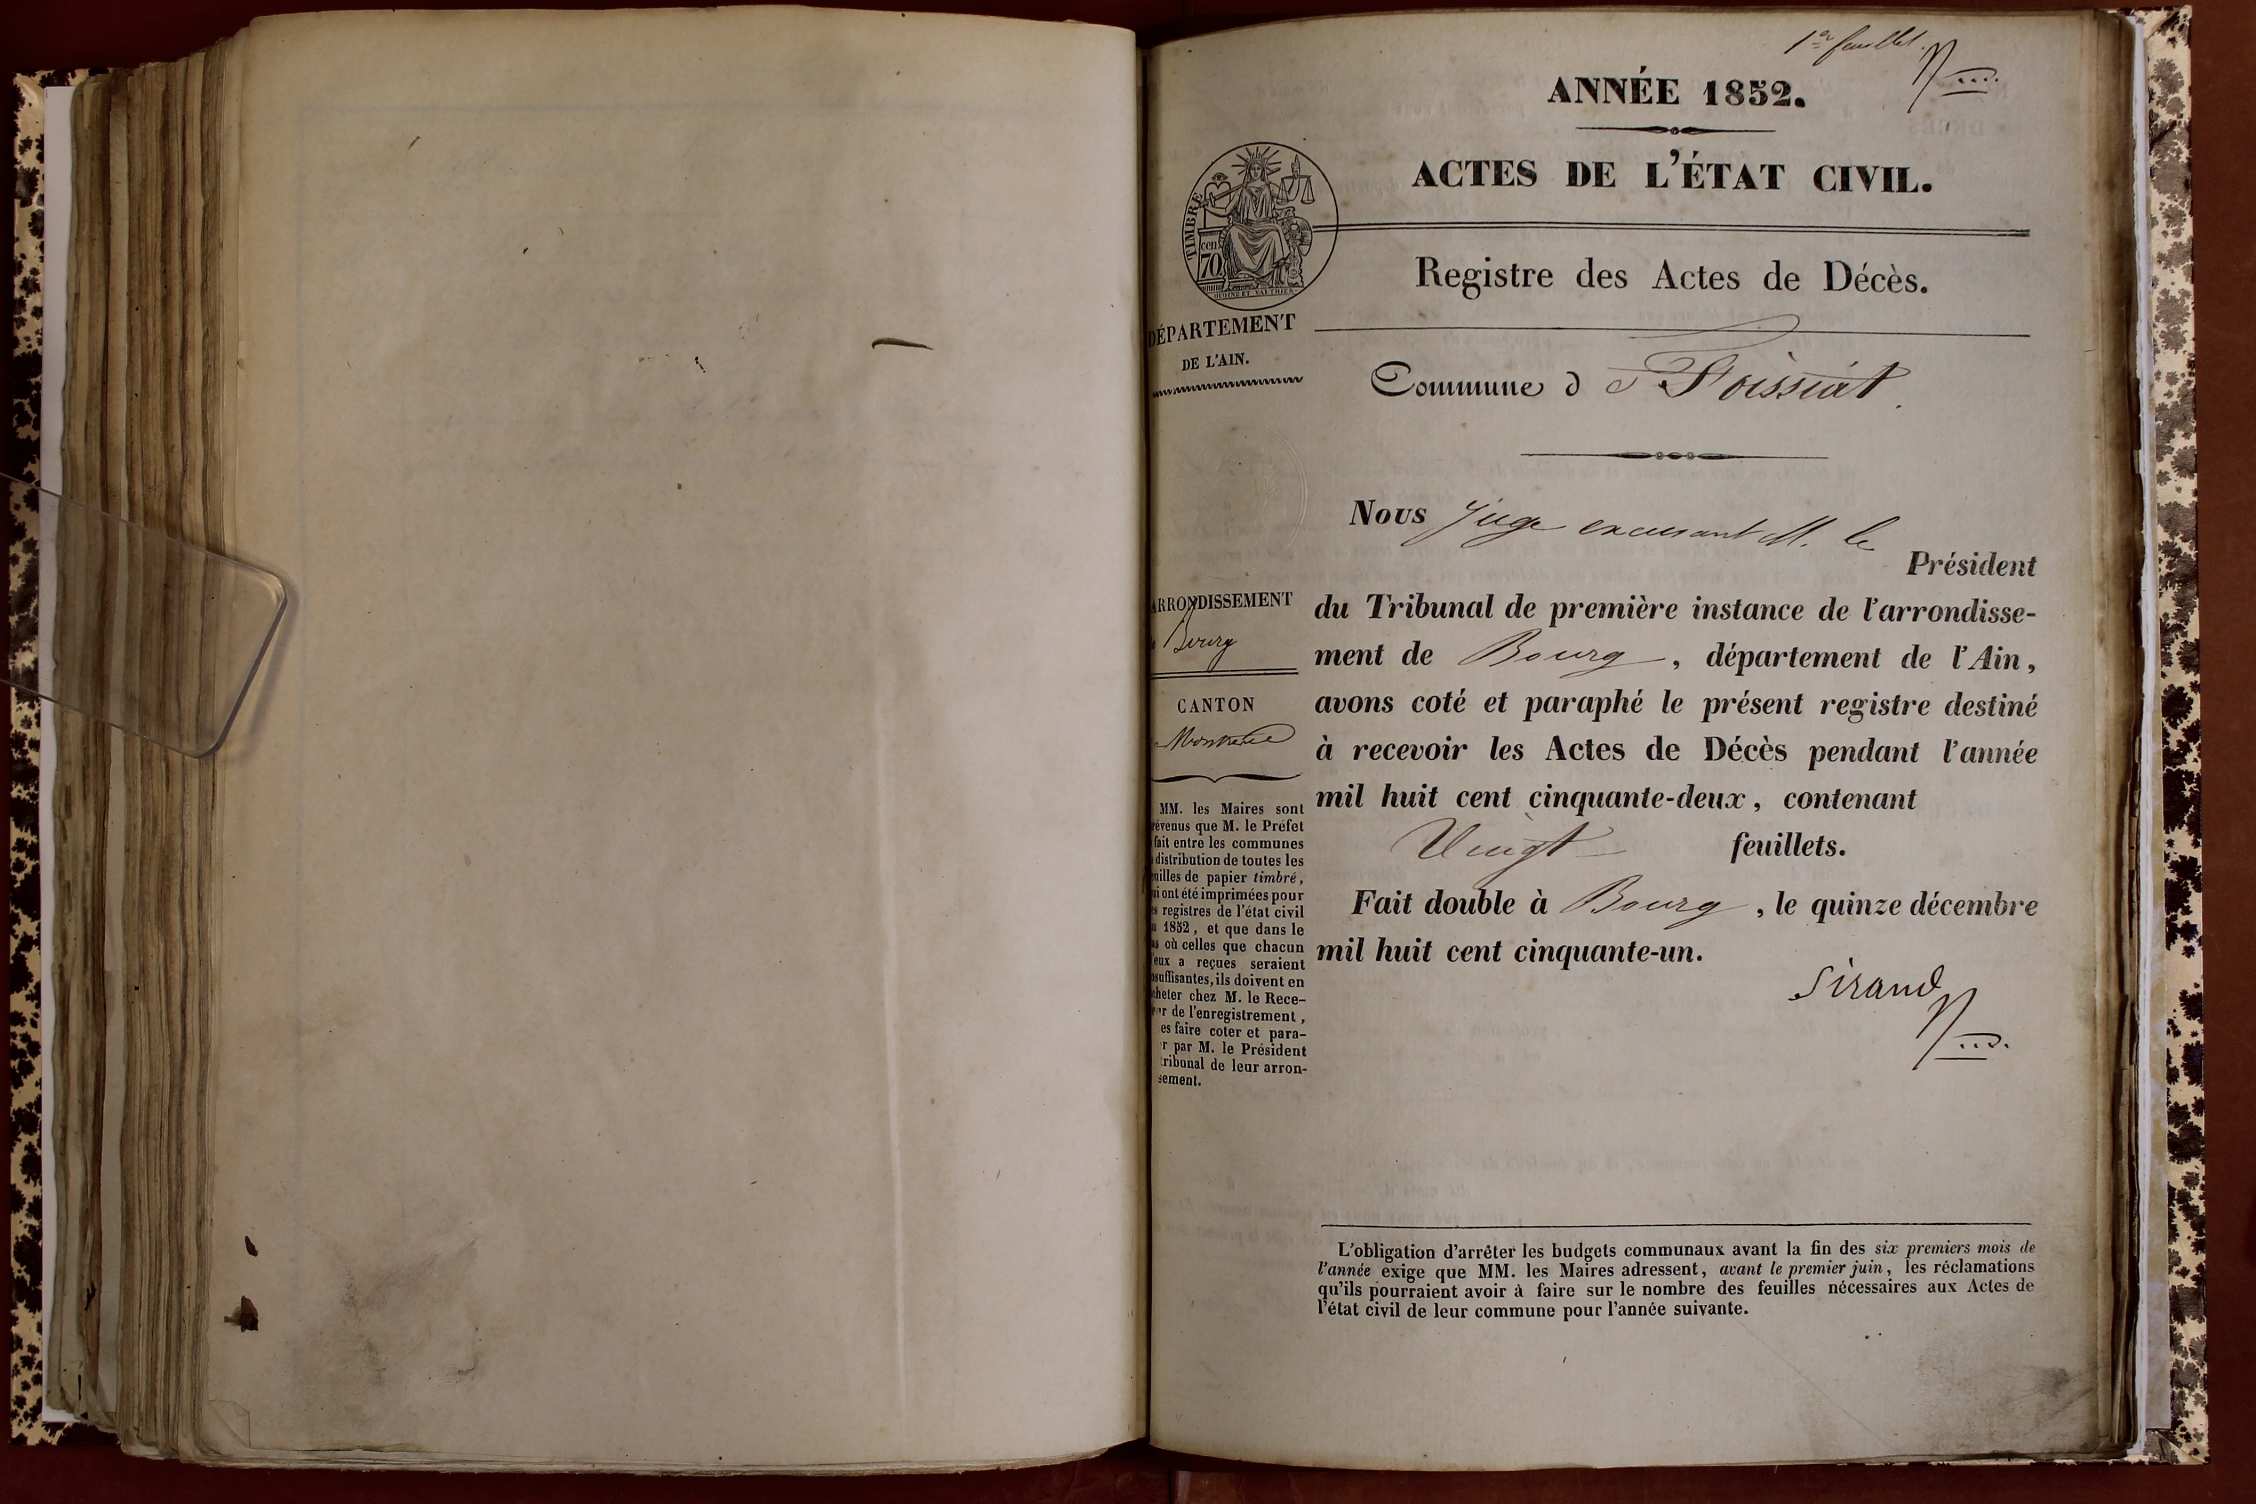 1er feuillet.
ANNÉE 1852.
ACTES DE L'ÉTAT CIVIL.
TIMBRE
cen
70
Registre des Actes de Décès.
DÉPARTEMENT
DE L'AIN.
Commune d e Foissiat
Nous Juge excusant M. le
Président
du Tribunal de première instance de l'arrondisse-
ment de Bourg, département de l'Ain,
avons coté et paraphé le présent registre destiné
à recevoir les Actes de Décès pendant l'année
mil huit cent cinquante-deux, contenant
Vingt feuillets.
Fait double à Bourg, le quinze décembre
mil huit cent cinquante-un.
Sirand
ARRONDISSEMENT
Bourg
CANTON
Montrevel
MM. les Maires sont
révenus que M. le Préfet
fait entre les communes
distribution de toutes les
uilles de papier timbré,
ui ont été imprimées pour
es registres de l'état civil
n 1852, et que dans le
as où celles que chacun
'eux a reçues seraient
nsuffisantes, ils doivent en
cheter chez M. le Rece-
r de l'enregistrement,
es faire coter et para-
r par M. le Président
tribunal de leur arron-
sement.
L'obligation d'arrêter les budgets communaux avant la fin des six premiers mois de
l'année exige que MM. les Maires adressent, avant le premier juin, les réclamations
qu'ils pourraient avoir à faire sur le nombre des feuilles nécessaires aux Actes de
l'état civil de leur commune pour l'année suivante.